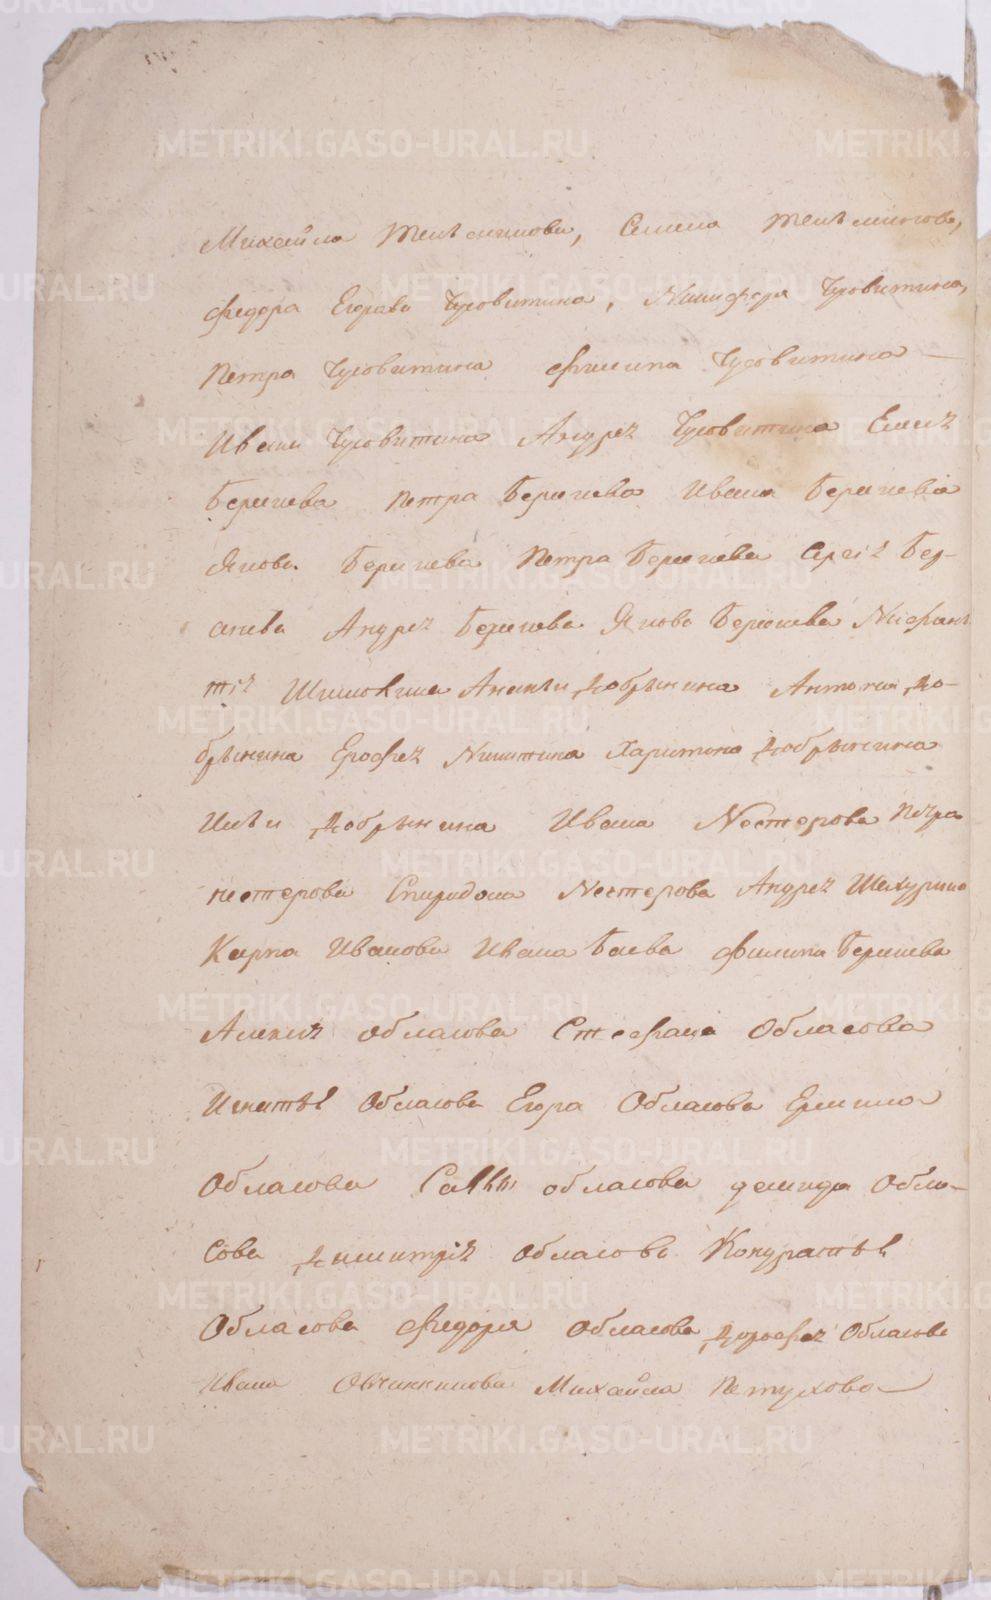 Михайла Телѣгинова, Семена
Федора Егорова Чусовитина, Никифора Чусовитина,
Петра Чусовитина Филипа Чусовитина
Ивана Чусовитина Андреѧ Чусовитина
Беричева Петра Беричева Ивана Беричева
Якова Беричева Петра Беричева Сергѣѧ Бер-
Андреѧ Беричева Якова Беричева
Ананьи Добрынина Антона До-
брынина Ерофеѧ Никитина Харитона Добрынина
Ильи Добрынина Ивана Нестерова Петра
нестерова Спиридона Нестерова Андреѧ
Карпа Иванова Ивана Баева Филипа Беричева
Алексѣѧ обласова Стефана Обласова
Игнатья Обласова Егора Обласова Ермила
Обласова Савы обласова демида Обла-
сова Димитріѧ обласова Кондратья
Обласова Федора Обласова Дорофеѧ Обласова
Ивана Овчинникова Михайла Петухова
METRIKI.GASO-URAL.RU